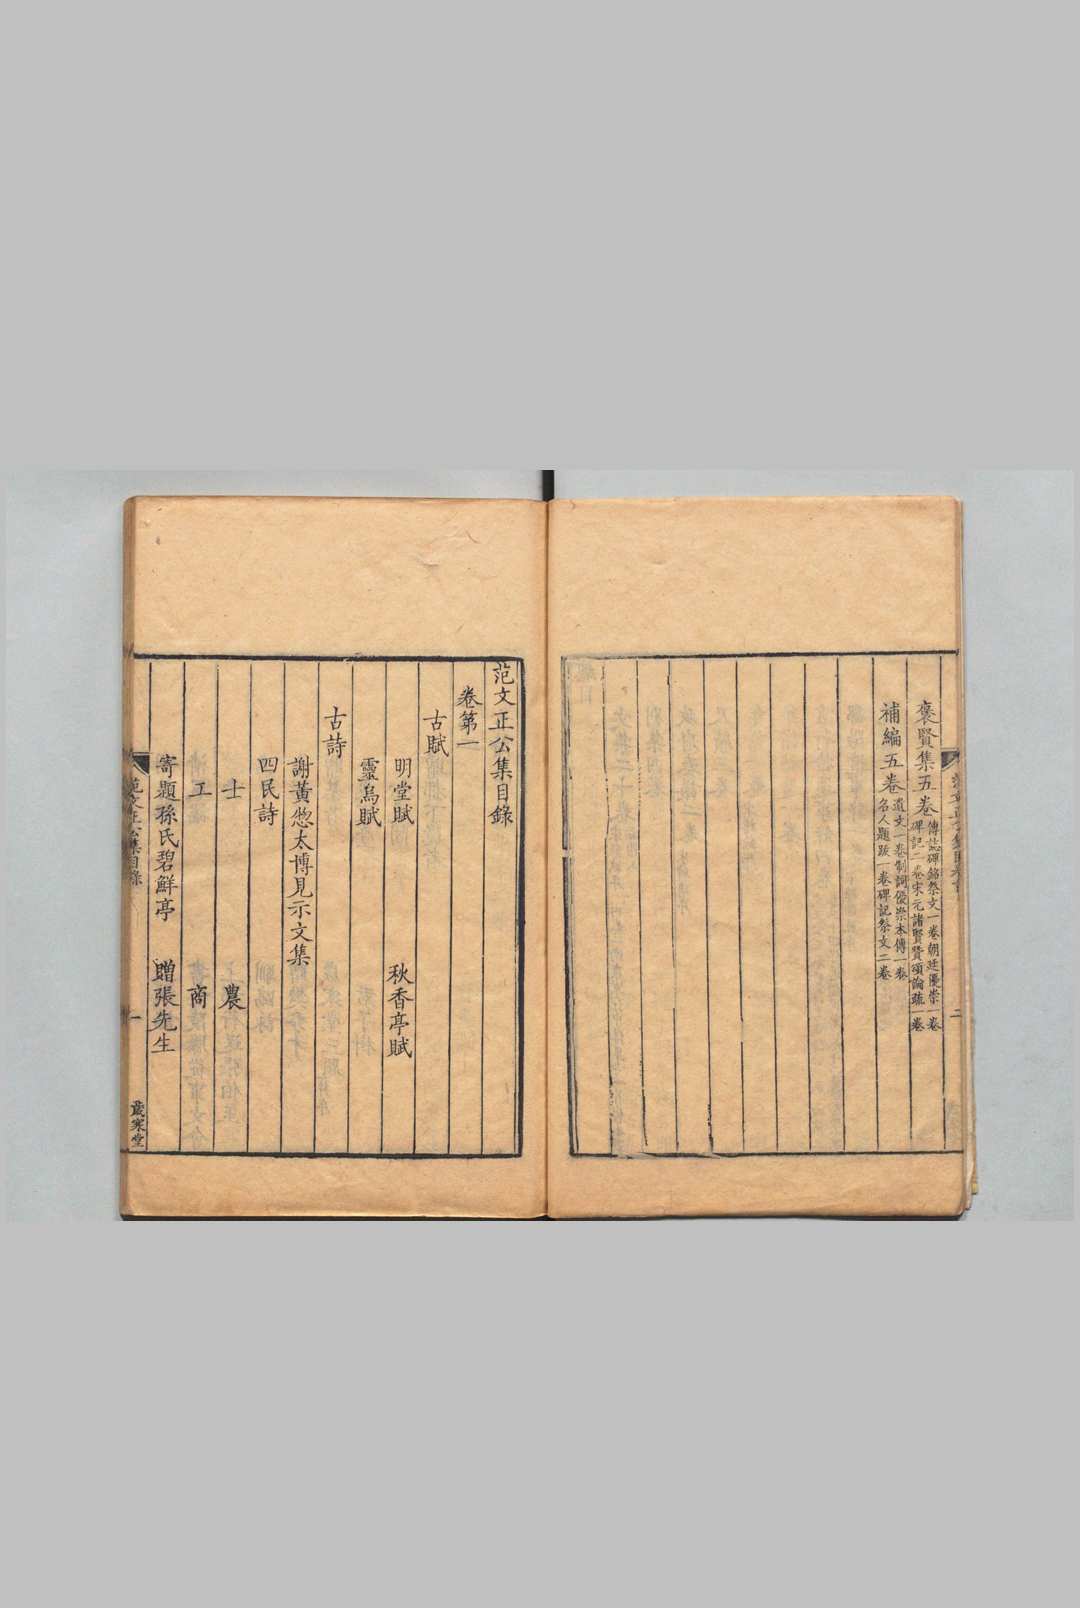 褒賢集五卷 傳誌碑銘祭文一卷朝廷優崇一卷
碑記二卷宋元諸賢贊頌論疏一卷
補編五卷 遺文一卷制詞優崇本傳一卷
名人題跋一卷碑記祭文二卷
二
范文正公集目錄
卷第一
古賦
明堂賦 秋香亭賦
靈烏賦
古詩
謝黃惣太博見示文集
四民詩
士 農
工 商
寄題孫氏碧鮮亭 贈張先生
范文正公集目錄
一
歲寒堂